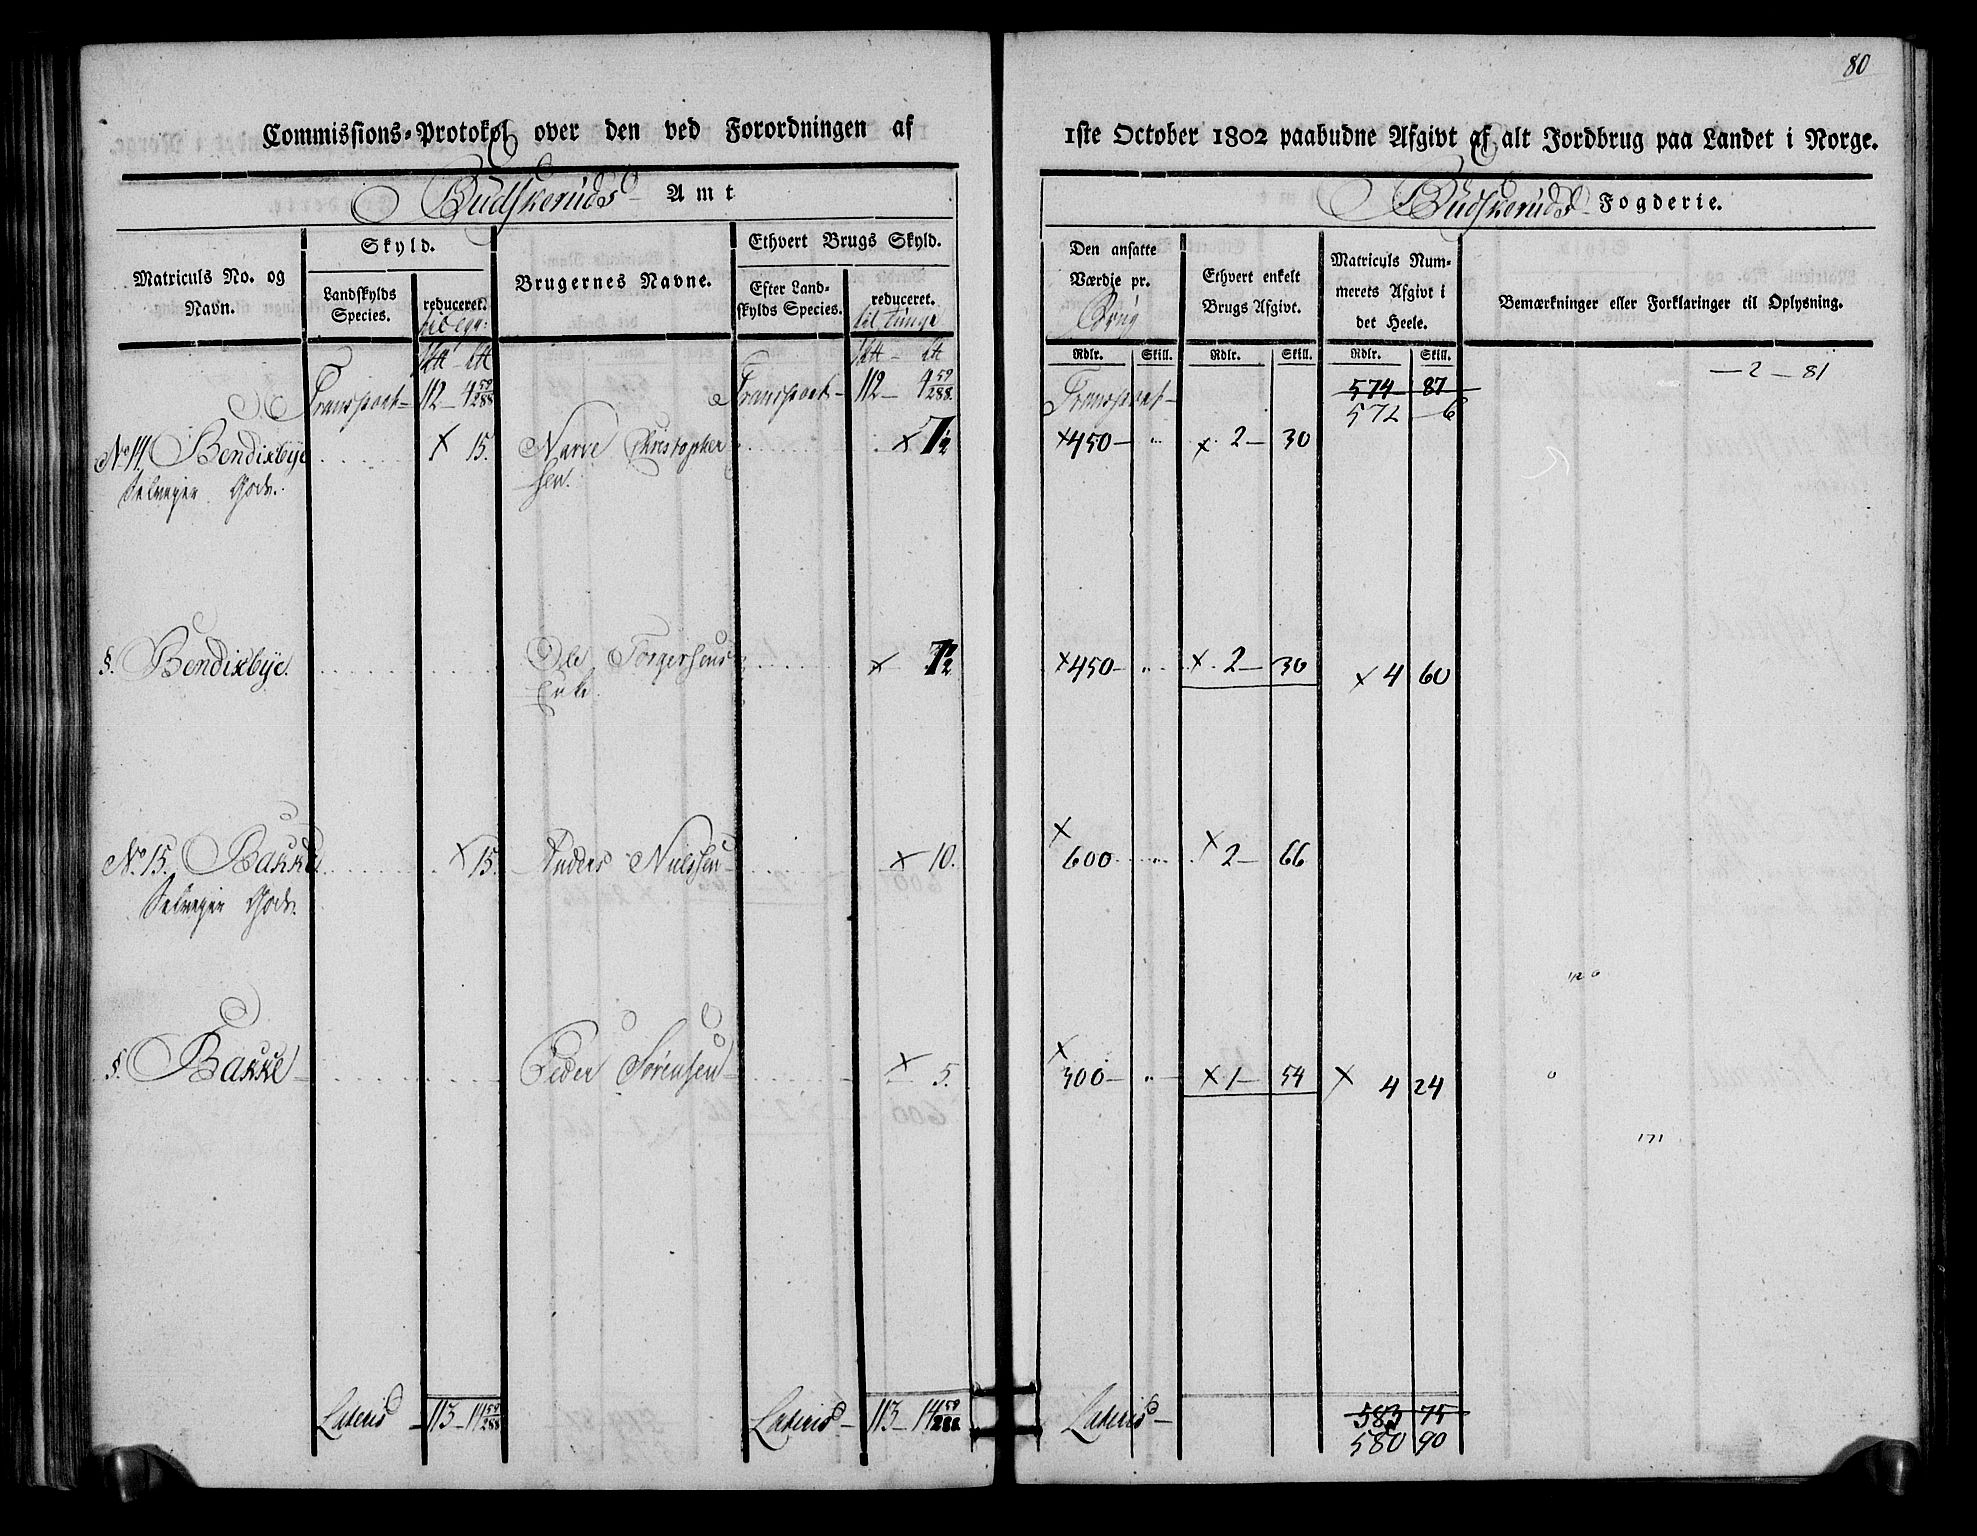 80
Commissions-Protokol over den ved Forordningen af
1ste October 1802 paabudne Afgivt af alt Jordbrug paa Landet i Norge.
Budskeruds Amt
Budskeruds Fogderie.
Matriculs No. og Navn.
Skyld.
Landskylds Species.
reduceret.
Brugernes Navne.
Ethvert Brugs Skyld.
Efter Landskylds Species.
reduceret.
til Tunge
Den ansatte Værdie pr.
Brug
Rdlr. Skill.
Ethvert enkelt Brugs Afgivt.
Rdlr. Skill.
Matriculs Nummerets Afgivt i det Heele.
Rdlr. Skill.
Bemærkninger eller Forklaringer til Oplysning.
— 2 — 81
Transport — 112 — 4 59/288 Transport — 112 — 4 59/288. Transport — 574 87
572 — 6
No 14. Bendixbye × 15. Narve Christopher × 7 1/2 × 450 — „ × 2 — 30
Selveyer Gods. sen.
§. Bendixbye. Ole Torgersens × 7 1/2 × 450 — „ × 2 — 30 × 4 60
Enke.
No 15. Bakke × 15. Anders Nielssen × 10. × 600 „ × 2 — 66
Selveyer Gods.
§. Bakke Peder Sørensen × 5. × 300 — „ × 1 — 54 × 4 24
Lateris — 113 — 14 59/288 Lateris — 113 — 14 59/288 Lateris — 583 75
580 90